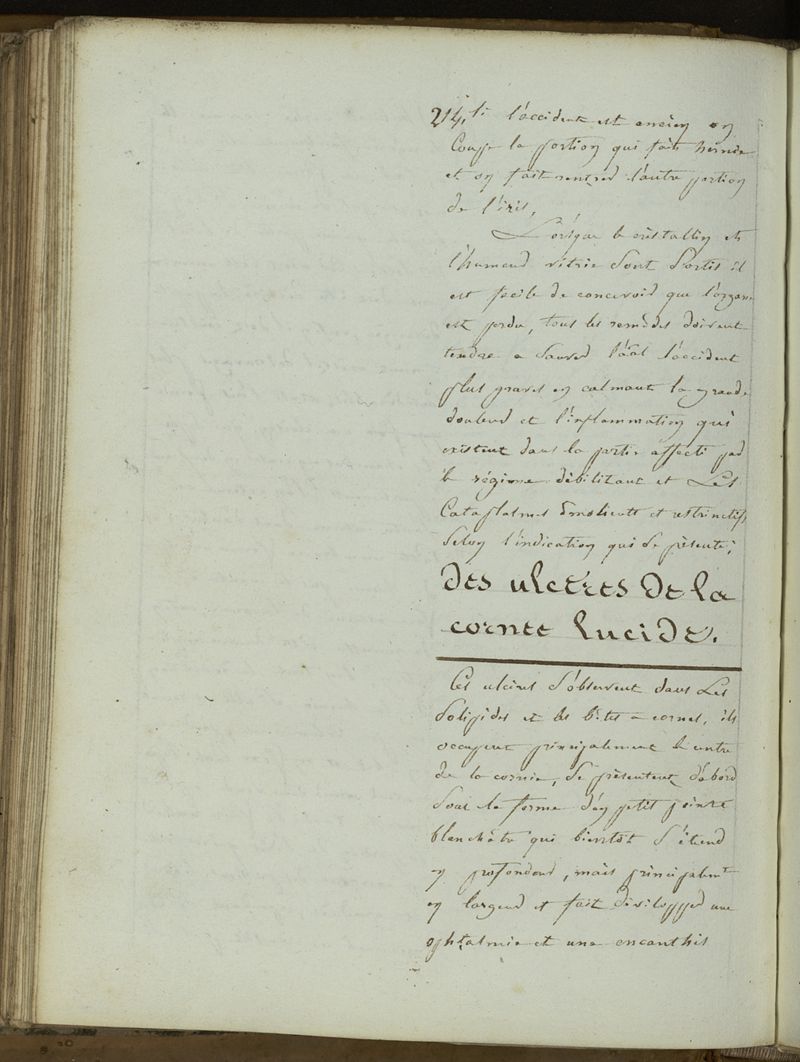 214. si l'accident est ancien on
Coupe la portion qui fait hernie
et on fait rentrer l'autre portion
de l'iris,
Lorsque le cristallin et
l'humeur vitrée sont sortis il
est facile de concevoir que l'organe
est perdu, tous les remèdes doivent
tendre a sauver l'accident
plus graves en calmant la grande
douleur et l'inflammation qui
existent dans la partie affecté par
le régime débilitant et Les
Cataplasmes émolients et restrinctifs
selon l'indication qui se présente;
des ulcères de la
cornée lucide.
Ces ulcères s'observent dans Les
solipèdes et les bêtes a cornes, ils
occupent principalement le centre
de la cornée, se présentent d'abord
sous la forme d'un petit point
blanchâtre qui bientôt s'étend
en profondeur, mais principalemt
en largeur et fait développer une
ophtalmie et une encanthis